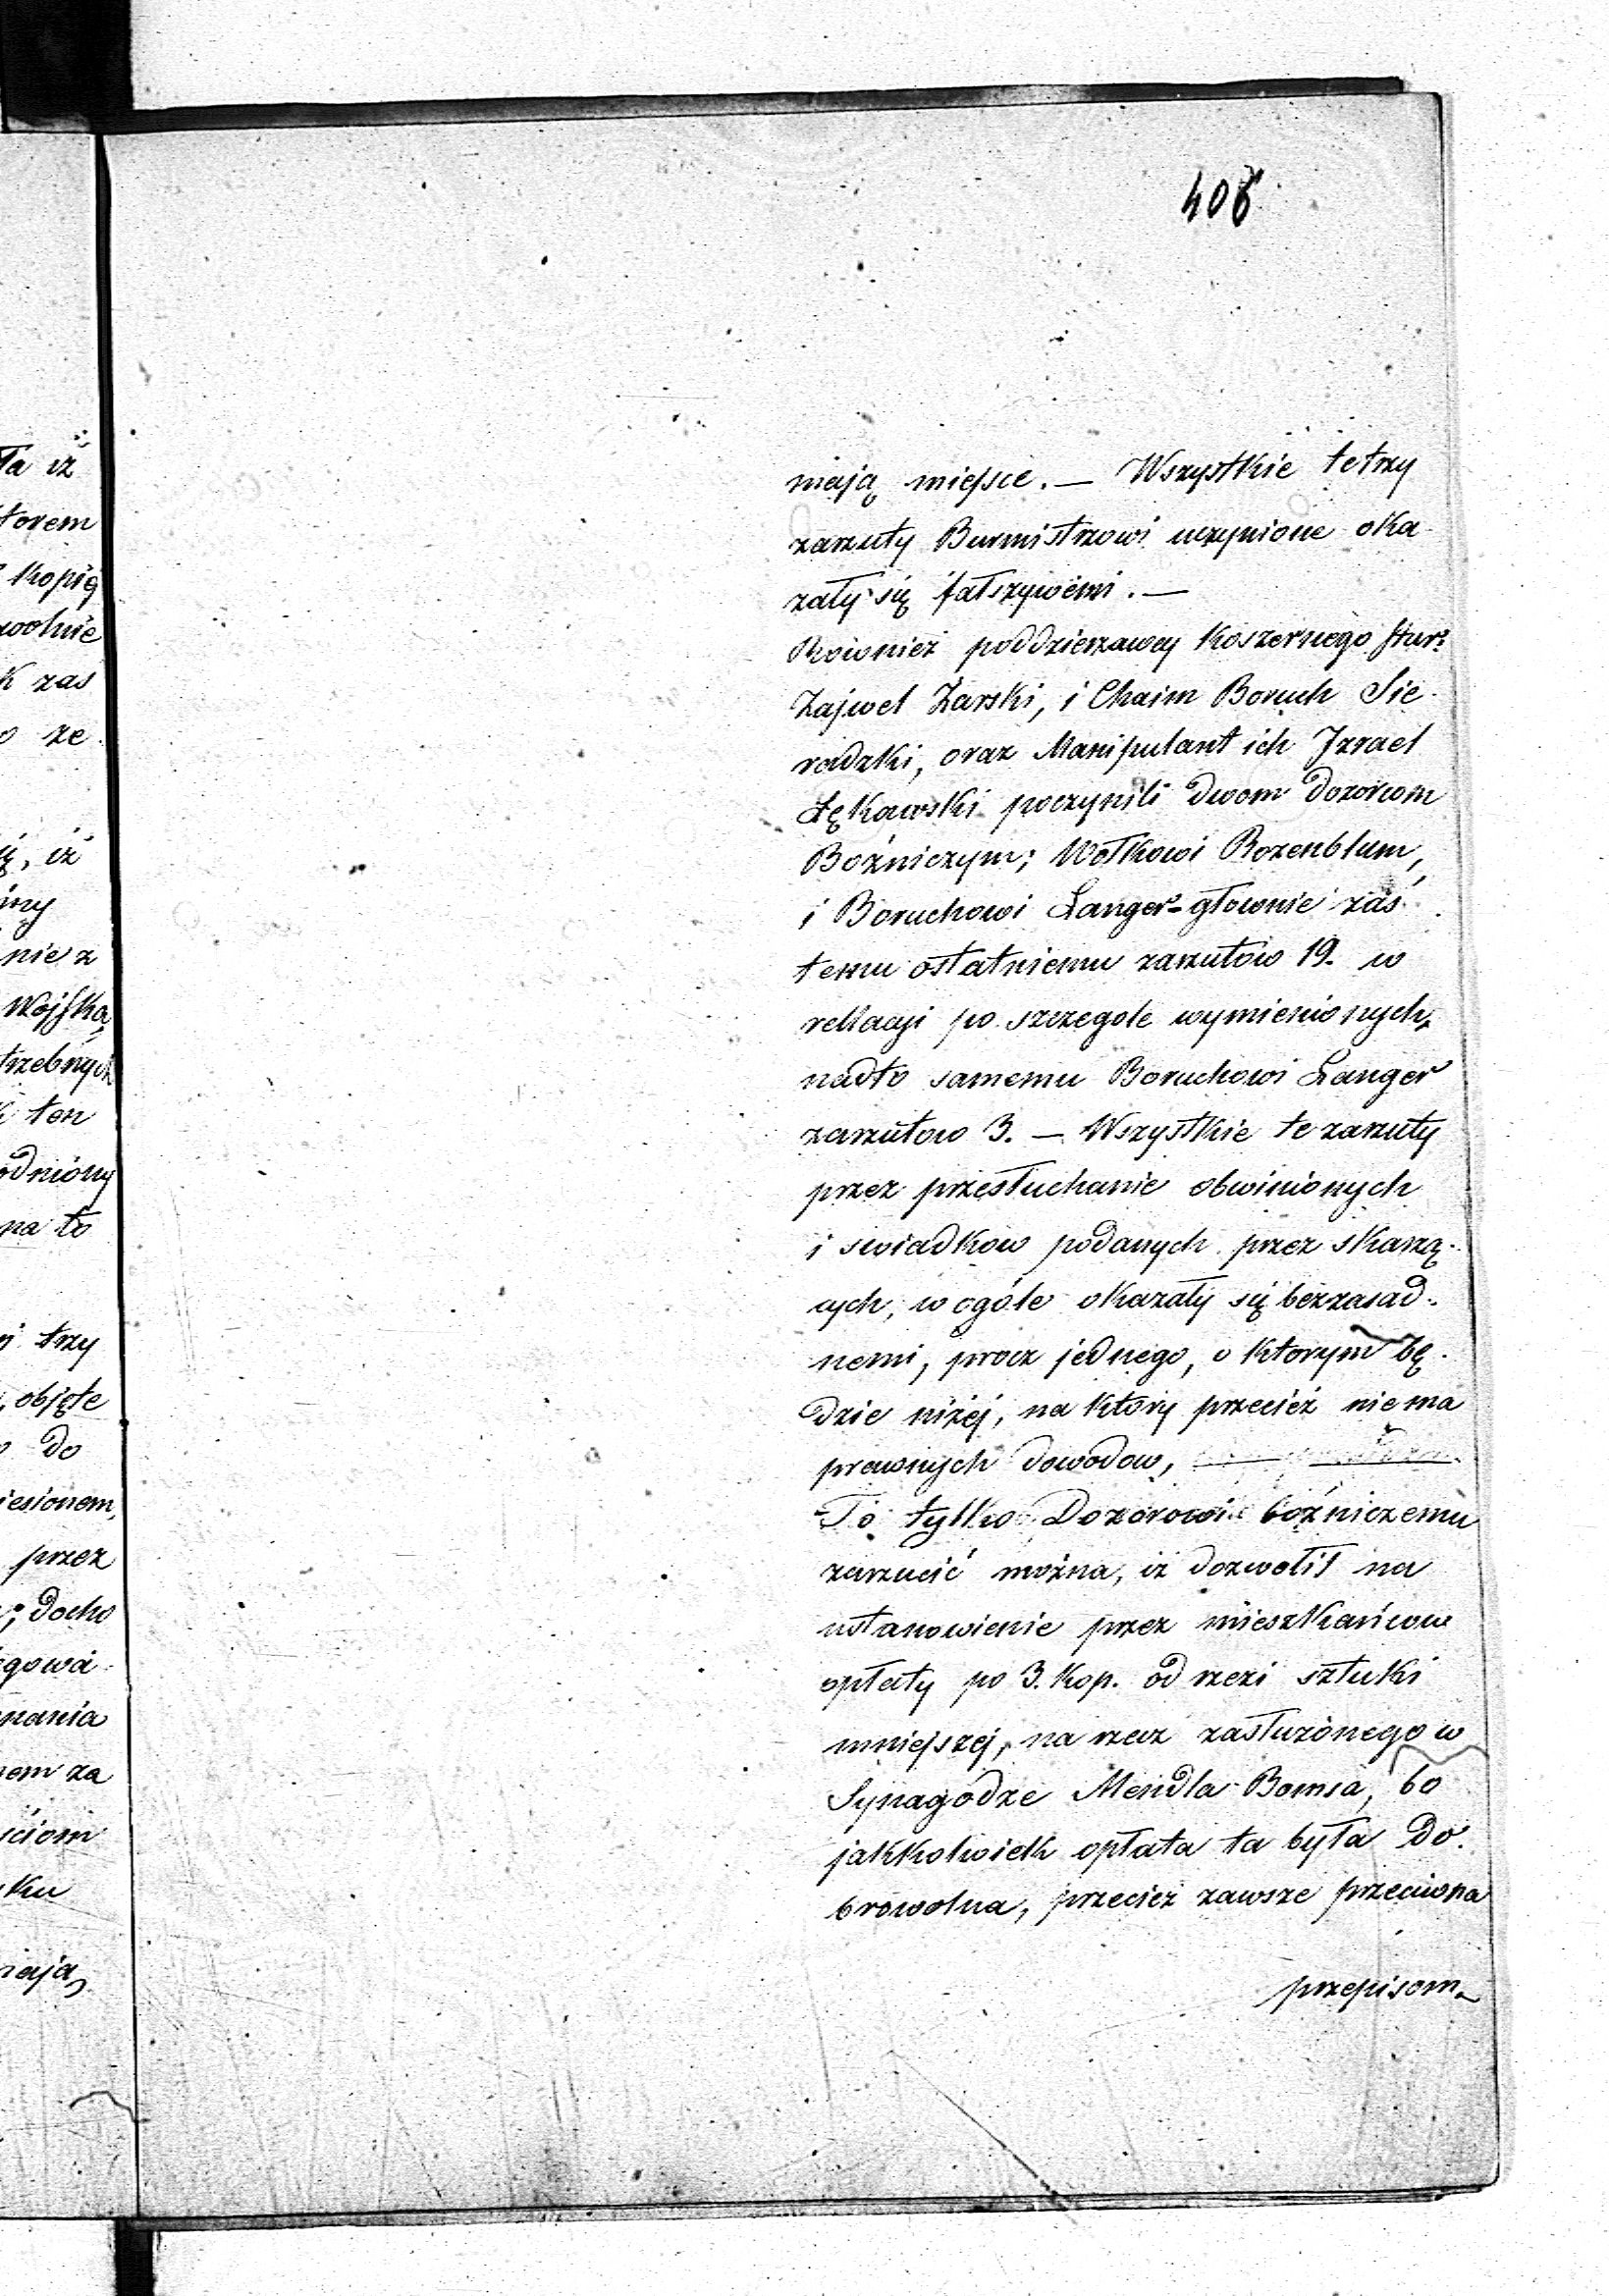 406
mają miejsce. — Wszystkie te trzy
zarzuty Burmistrzowi uczynione oka
zały się fałszywemi. —
Rowniez poddzierzawcy Koszernego
Zajwel Żarski, i Chaim Boruch Sie
radzki, oraz Manipulant ich Izrael
Łękawski poczynili dwom dozorcom
Bożniczym; Wolkowi Rozenblum,
i Boruchowi Langer - głownie zaś
temu ostatniemu zarzutów 19. w
rellacyi po szczegole wymienionych,
nadto samemu Boruchowi Langer
zarzutow 3. — Wszystkie te zarzuty
przez przesłuchanie obwinionych
i swiadkow podanych przez skarzą
cych, w ogóle okazały się bezzasad
nemi, procz jednego, o ktorym bę
dzie niżej, na który przecież nie ma
prawnych dowodow,
To tylko Dozorowi bożniczemu
zarzucić można, iz dozwolił na
ustanowienie przez mieszkańcow
opłaty po 3. kop. od rzezi sztuki
mniejszej, na rzecz zasłużonego w
Synagodze Mendla Bomsa, bo
jakkolwiek opłata ta była do
browolna, przeciez zawsze przeciwna
przepisom
ła iż
torem
kopię
k zas
ze
iż
nie z
Wojska,
trzebnych
ten
na to
trzy
objęte
do
iesionem,
przez
docho
gowa
nania
em za
ściom
ku
mają